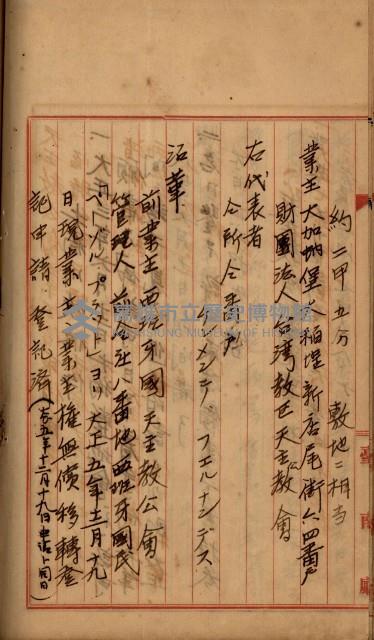 約二甲五分 敷地ニ相当
業主大加蚋堡大稲埕新店尾街六四番戸
財團法人台湾教区天主教會
右代表者
仝所仝番戸
クレメンテ、フェルナンデス
沿革
前業主西班牙國天主教公會
管理人 八番地西班牙國民
「ペードル・プラット」ヨリ大正五年十二月十九
日現業主ニ業主権無償移轉登
記申請、登記済(大正五年十二月十九日申請ト同日)
臺南廳
高雄市立歷史博物館
KAOHSIUNG MUSEUM OF HISTORY